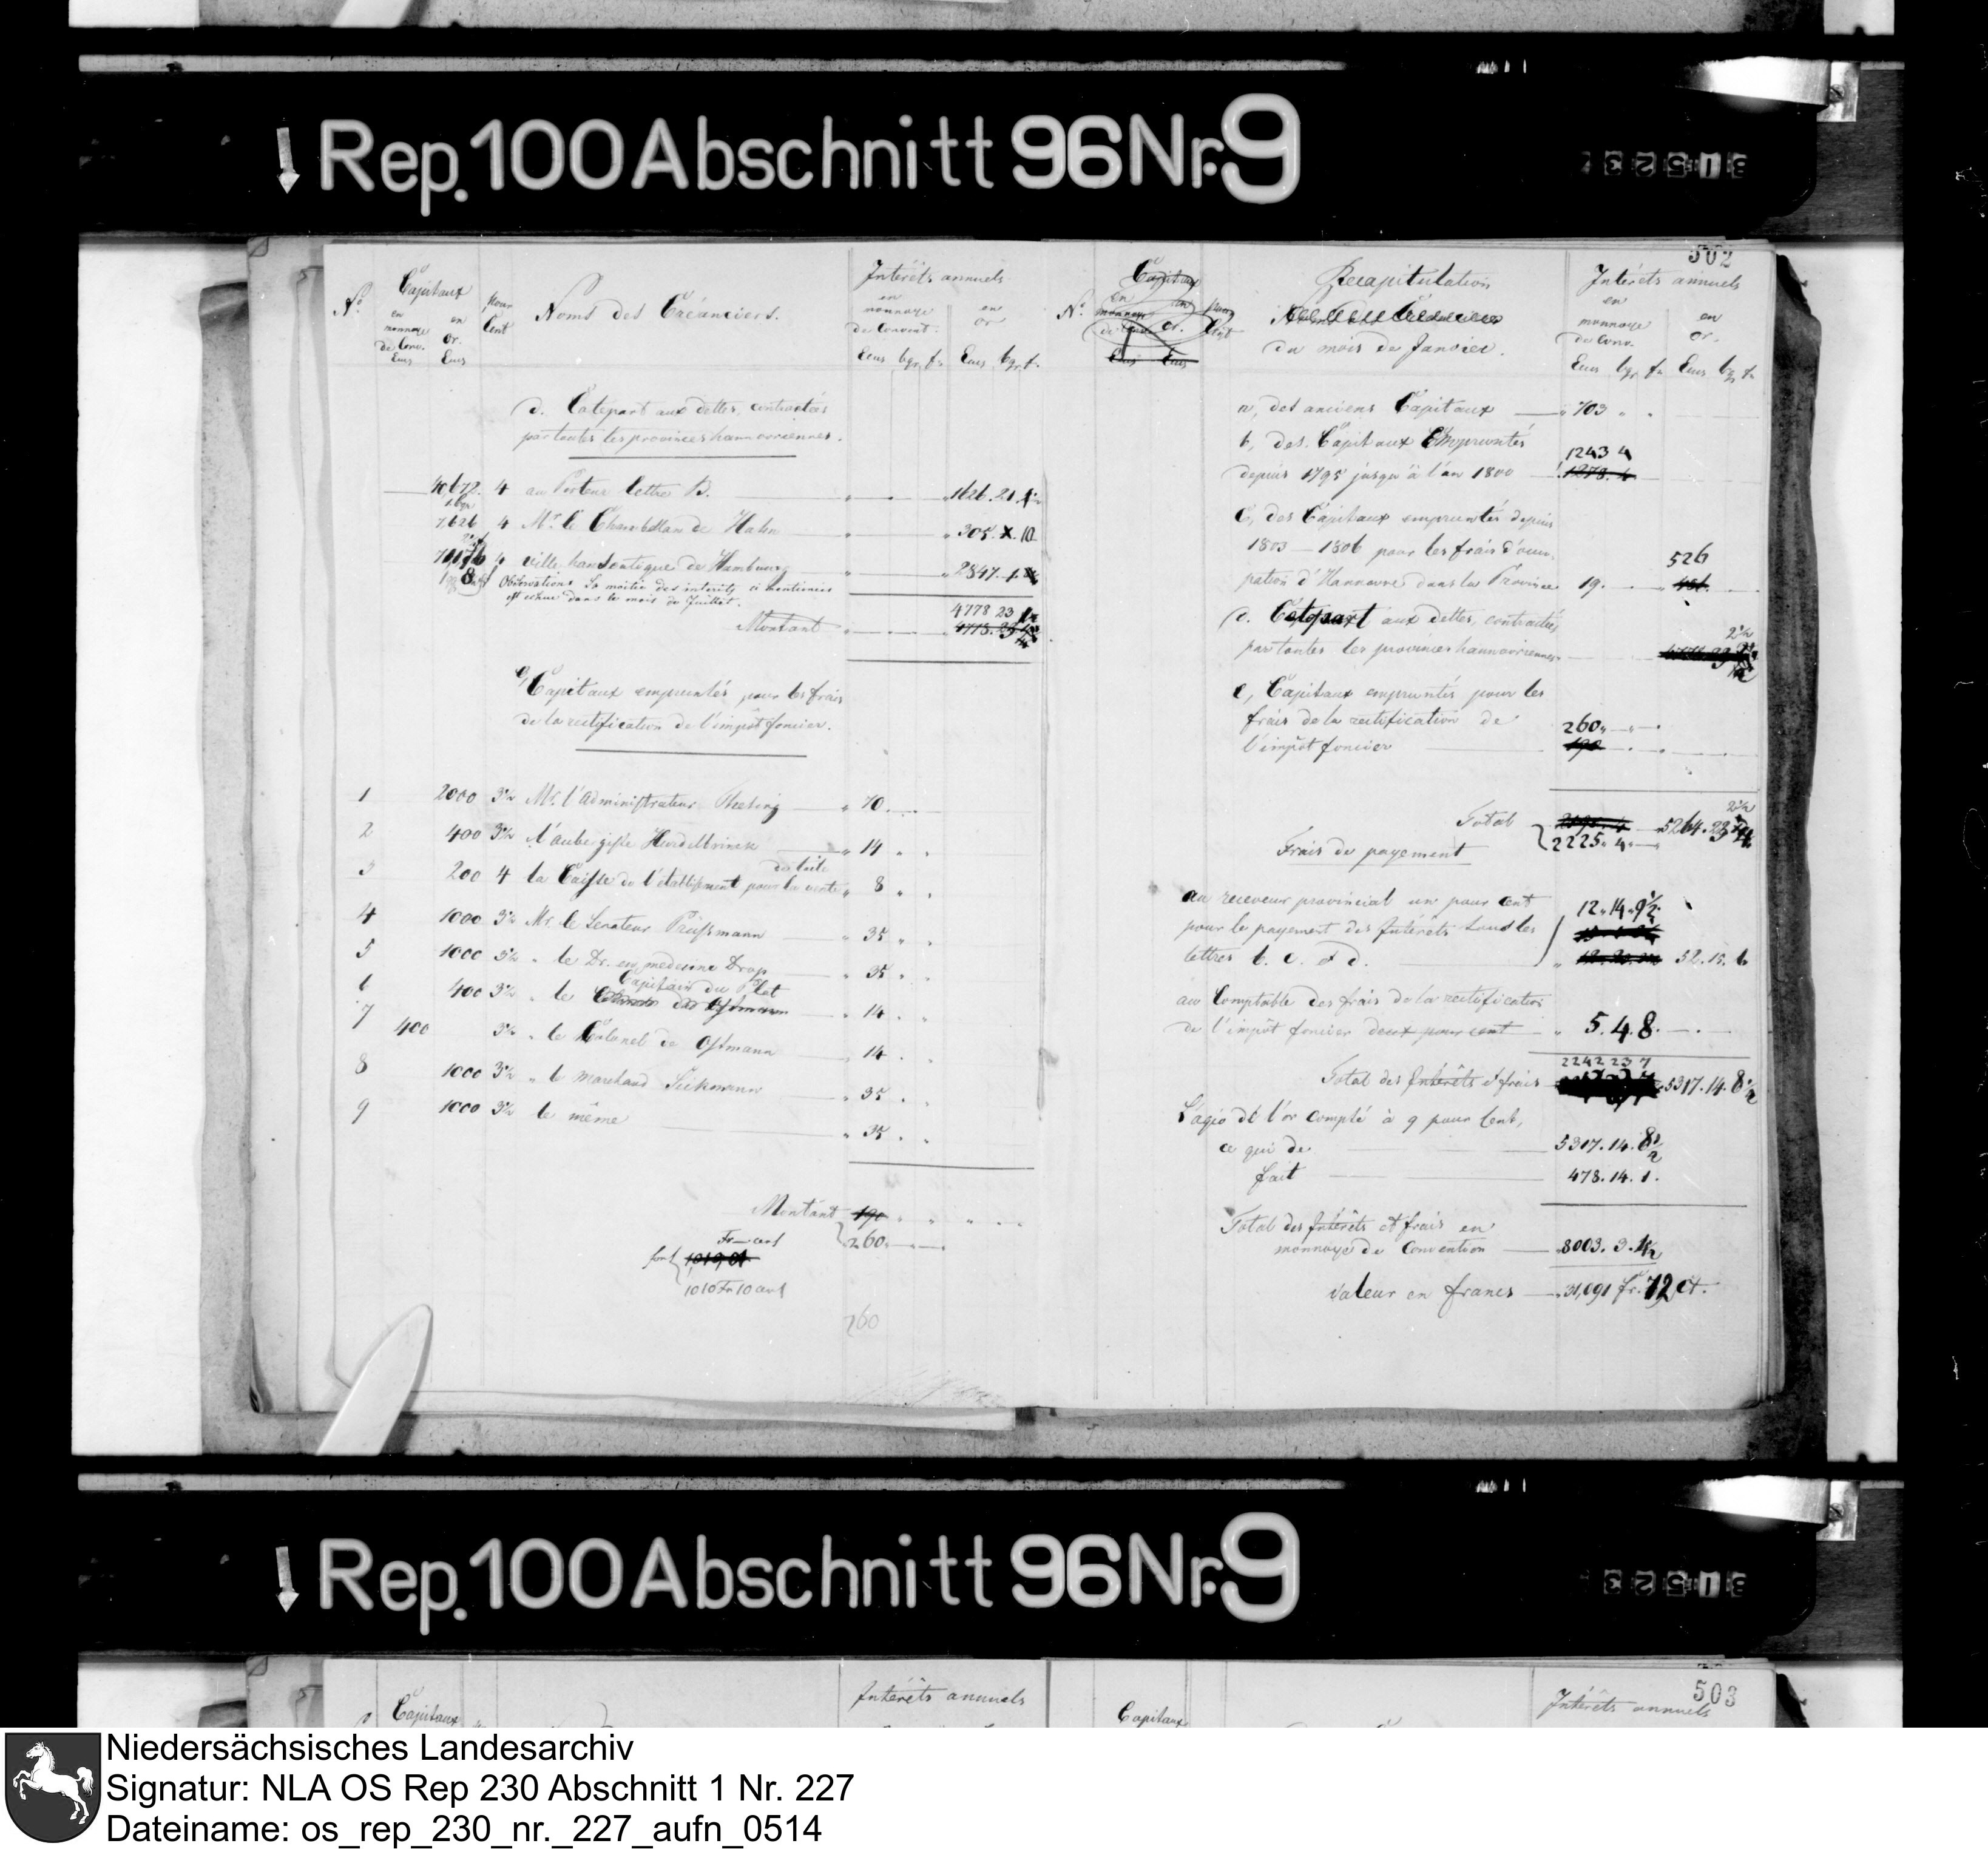 Rep. 100 Abschnitt 96 Nr. 9
502
No. Capitaux pour Cent Noms des Créanciers. Intérêts annuels
en monnoye de Conv. Ecus en or. Ecus
en monnoye de Convent. Ecus bgr. f. en or Ecus bgr. f.
d. Cotepart aux dettes, contractées
par toutes les provinces hannovriennes.
40,672. 4 au Porteur lettre B. 1626. 21.
7,626 4 Mr. le Chambellan de Hahn 305. 10
4 ville hanséatique de Hambourg 2847. 1.
Observation. La moitié des interêts ci mentionnés
est échue dans le mois de Juillet.
4778 23
Montant
e, Capitaux empruntés pour les frais
de la rectification de l'impôt foncier.
1 2000 3½ Mr. l'administrateur 70.
2 400 3½ l'aubergiste 14
3 200 4 la Caisse de l'établissement pour la vente de toile 8
4 1000 3½ Mr. le Senateur Prüssmann 35
5 1000 3½ " le Dr. en medecine Drop 35
6 400 3½ " le Capitain du Plat 14
7 400 3½ " le Colonel de Ostmann 14
8 1000 3½ " le marchand 35
9 1000 3½ le même 35
Montant 190
260
font
1010 Fr 10 cent
260
No. Capitaux pour Cent
Recapitulation
du mois de Janvier.
Intérêts annuels
en monnoye de Conv. en or.
Ecus bgr. f. Ecus bgr. f.
a, des anciens Capitaux 703
b, des Capitaux Empruntés
1243 4
depuis 1795 jusqu'à l'an 1800 1278. 4
c, des Capitaux empruntés depuis
1803 — 1806 pour les frais d'occu-
526
pation d'Hannovre dans la Province 19.
d. Cotepart aux dettes, contractées
par toutes les provinces hannovriennes
e, Capitaux empruntés pour les
frais de la rectification de
260
l'impôt foncier 190
Total 5264. 23
2225. 4.
Frais de payement
au receveur provincial un pour cent
12. 14. 9½
pour le payement des Intérêts sous les
lettres b. c. et d. 52. 15. 6
au Comptable des frais de la rectification
de l'impôt foncier deux pour cent 5. 4. 8.
2242 23 7
Total des Intérêts et frais 5317. 14. 8½
L'agio de l'or compté à 9 pour Cent,
ce qui de 5317. 14. 8½
fait 478. 14. 1.
Total des Intérêts et frais en
monnoye de Convention 8003. 3.
Valeur en francs 31,091 fr. 72 ct.
Rep. 100 Abschnitt 96 Nr. 9
503
Capitaux Intérêts annuels Capitaux Intérêts annuels
Niedersächsisches Landesarchiv
Signatur: NLA OS Rep 230 Abschnitt 1 Nr. 227
Dateiname: os_rep_230_nr._227_aufn_0514